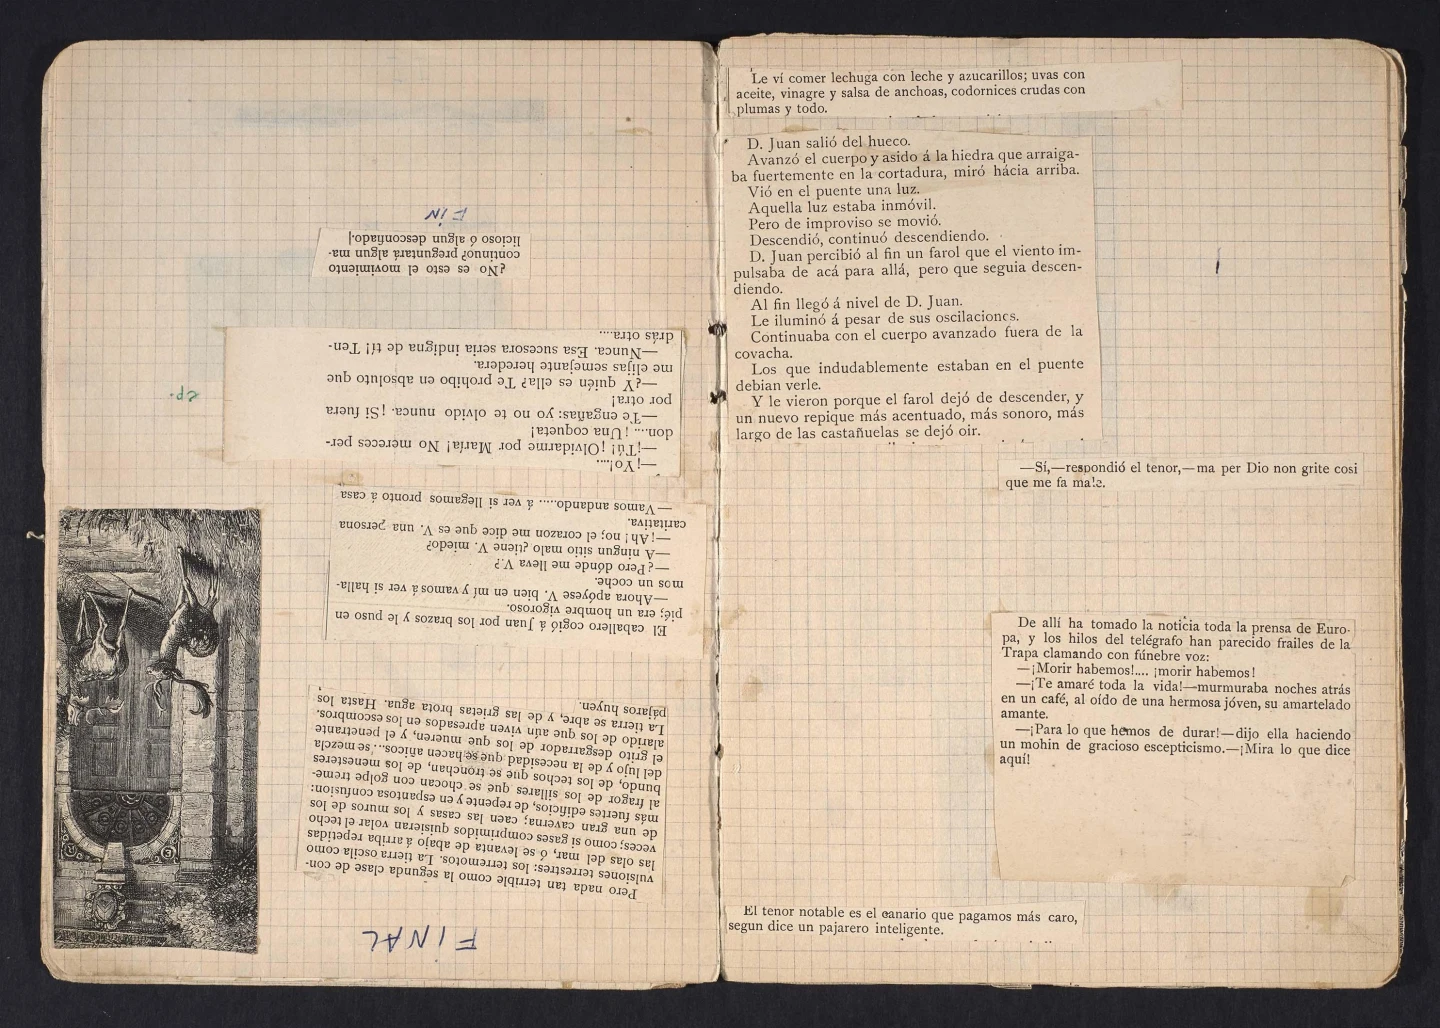 FINAL
Pero nada tan terrible como la segunda clase de con-
vulsiones terrestres: los terremotos. La tierra oscila como
las olas del mar, ó se levanta de abajo á arriba repetidas
veces; como si gases comprimidos quisieran volar el techo
de una gran caverna; caen las casas y los muros de los
más fuertes edificios, de repente y en espantosa confusion:
al fragor de los sillares que se chocan con golpe treme-
bundo, de los techos que se tronchan, de los menesteres
del lujo y de la necesidad que se hacen añicos... se mezcla
el grito desgarrador de los que mueren, y el penetrante
alarido de los que aún viven apresados en los escombros.
La tierra se abre, y de las grietas brota agua. Hasta los
pájaros huyen.
El caballero cogió á Juan por los brazos y le puso en
pié; era un hombre vigoroso.
—Ahora apóyese V. bien en mí y vamos á ver si halla-
mos un coche.
—¿Pero dónde me lleva V.?
—A ningun sitio malo ¿tiene V. miedo?
—¡Ah! no; el corazon me dice que es V. una persona
caritativa.
—Vamos andando..... á ver si llegamos pronto á casa
—¡Yo!....
—¡Tú! ¡Olvidarme por María! No mereces per-
don.... ¡Una coqueta!
—Te engañas: yo no te olvido nunca. ¡Si fuera
por otra!
—¿Y quién es ella? Te prohibo en absoluto que
me elijas semejante heredera.
—Nunca. Esa sucesora seria indigna de tí! Ten-
drás otra....
ep.
¿No es esto el movimiento
continuo? preguntará algun ma-
licioso ó algun desconfiado.
FIN
Le ví comer lechuga con leche y azucarillos; uvas con
aceite, vinagre y salsa de anchoas, codornices crudas con
plumas y todo.
D. Juan salió del hueco.
Avanzó el cuerpo y asido á la hiedra que arraiga-
ba fuertemente en la cortadura, miró hácia arriba.
Vió en el puente una luz.
Aquella luz estaba inmóvil.
Pero de improviso se movió.
Descendió, continuó descendiendo.
D. Juan percibió al fin un farol que el viento im-
pulsaba de acá para allá, pero que seguia descen-
diendo.
Al fin llegó á nivel de D. Juan.
Le iluminó á pesar de sus oscilaciones.
Continuaba con el cuerpo avanzado fuera de la
covacha.
Los que indudablemente estaban en el puente
debian verle.
Y le vieron porque el farol dejó de descender, y
un nuevo repique más acentuado, más sonoro, más
largo de las castañuelas se dejó oir.
—Sí,—respondió el tenor,—ma per Dio non grite cosi
que me fa male.
De allí ha tomado la noticia toda la prensa de Euro-
pa, y los hilos del telégrafo han parecido frailes de la
Trapa clamando con fúnebre voz:
—¡Morir habemos!.... ¡morir habemos!
—¡Te amaré toda la vida!—murmuraba noches atrás
en un café, al oído de una hermosa jóven, su amartelado
amante.
—¡Para lo que hemos de durar!—dijo ella haciendo
un mohin de gracioso escepticismo.—¡Mira lo que dice
aquí!
El tenor notable es el canario que pagamos más caro,
segun dice un pajarero inteligente.